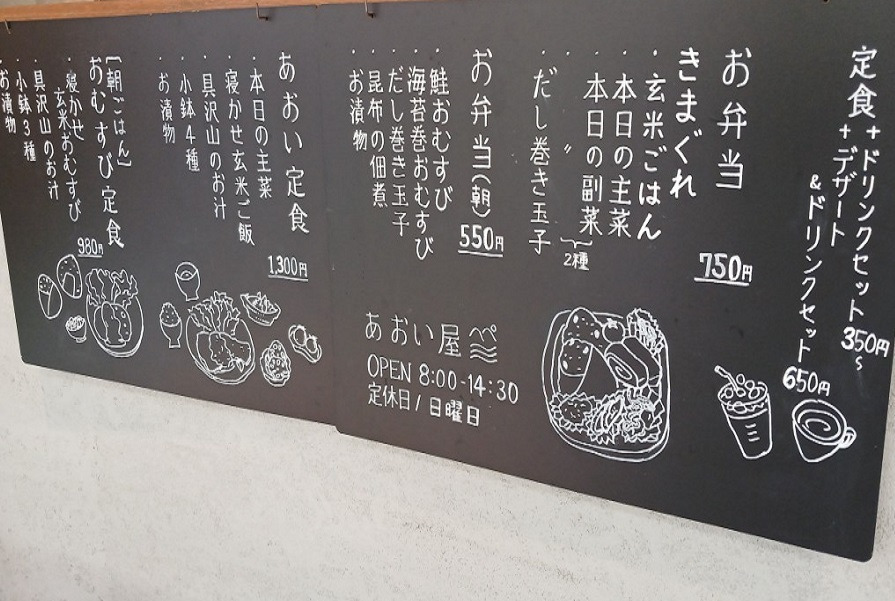 定食+ドリンクセット 350円~
+デザート
&ドリンクセット 650円
お弁当 750円
きまぐれ
・玄米ごはん
・本日の主菜
・本日の副菜 2種
・〃
・だし巻き玉子
お弁当(朝) 550円
・鮭おむすび
・海苔巻おむすび
・だし巻き玉子
・昆布の佃煮
・お漬物
あおい屋
OPEN 8:00-14:30
定休日/日曜日
あおい定食 1,300円
・本日の主菜
・寝かせ玄米ご飯
・具沢山のお汁
・小鉢4種
・お漬物
[朝ごはん]
おむすび定食 980円
・寝かせ
玄米おむすび
・具沢山のお汁
・小鉢3種
・お漬物